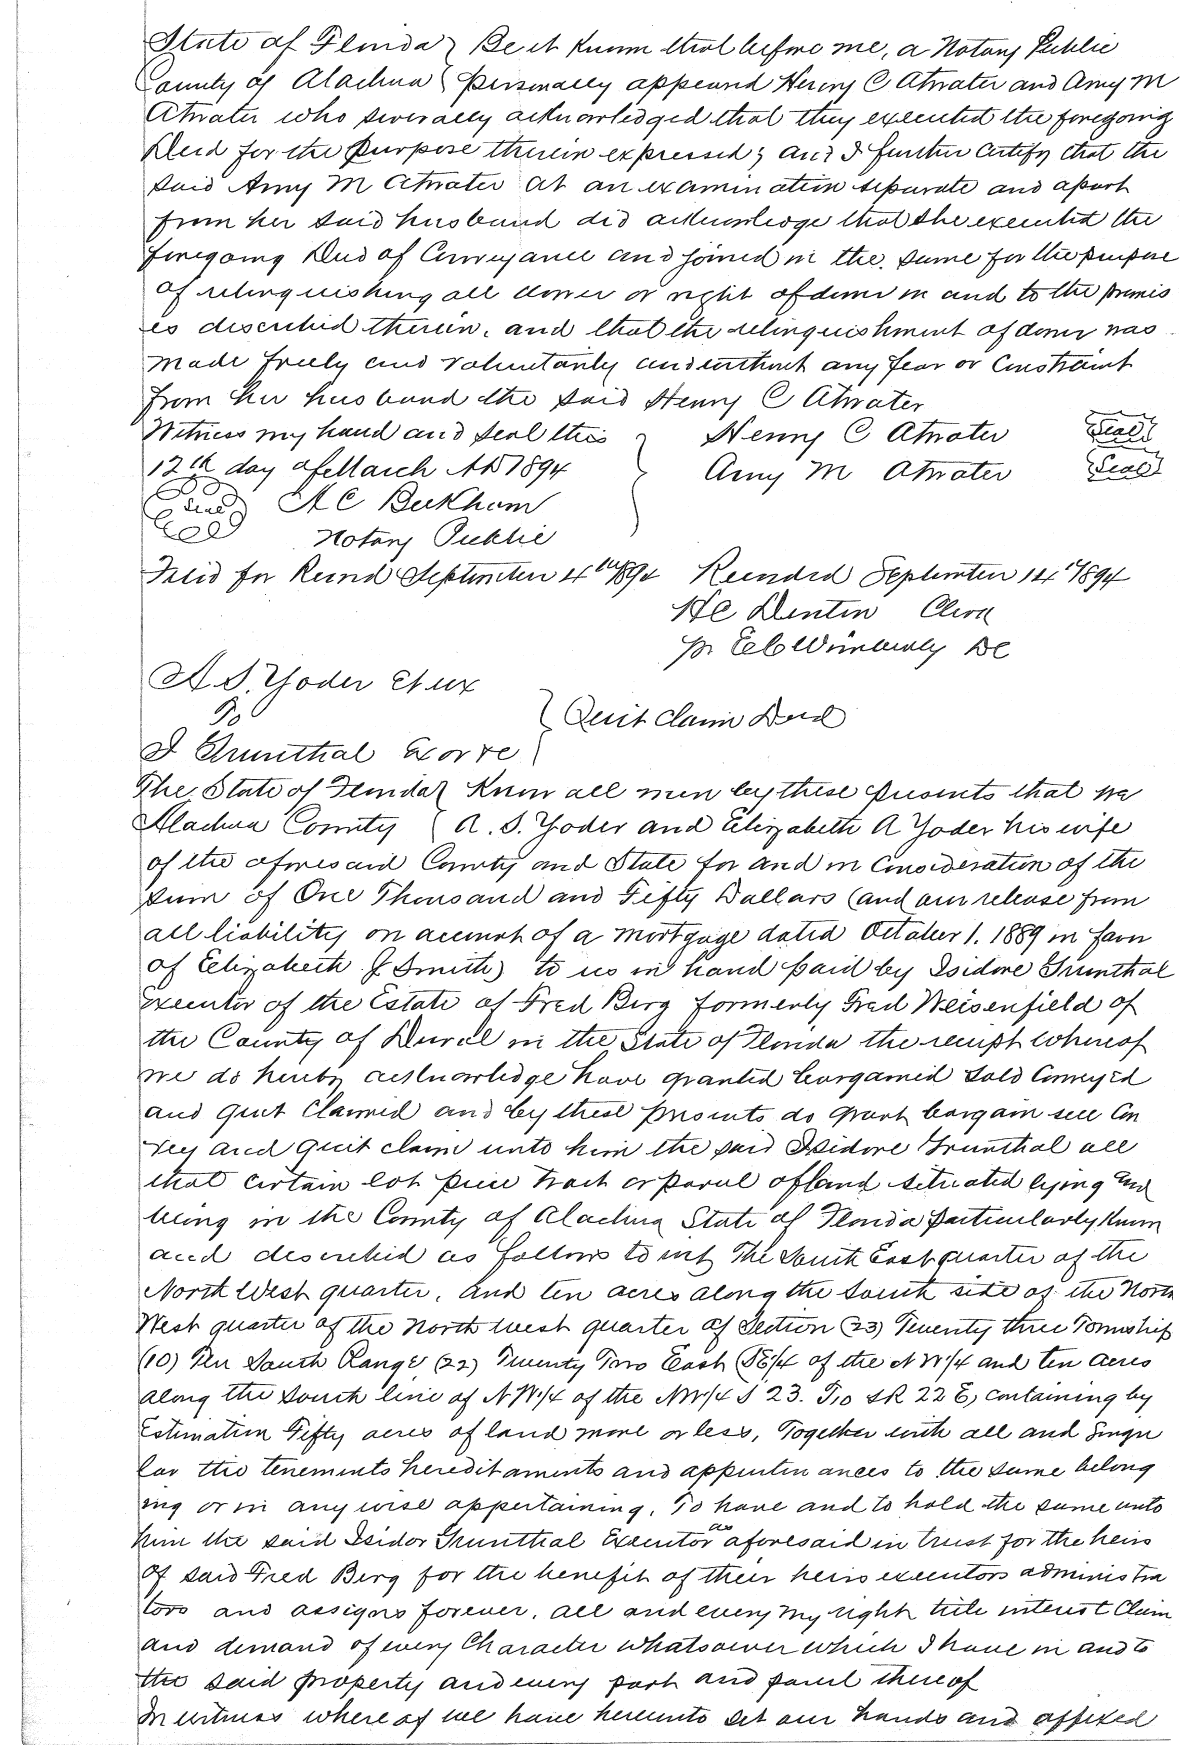 State of Florida } Be it Known that before me, a Notary Public
County of Alachua } personally appeared Henry C Atwater and Amy M
Atwater who severally acknowledged that they executed the foregoing
Deed for the purpose therein expressed; and I further Certify that the
said Amy M Atwater at an examination separate and apart
from her said husband did acknowledge that she executed the
foregoing Deed of Conveyance and joined in the same for the purpose
of relinquishing all dower or right of dower in and to the premis
es described therein, and that the relinquishment of dower was
made freely and voluntarily and without any fear or Constraint
from her husband the said Henry C Atwater
Witness my hand and seal this } Henry C Atwater (Seal)
12th day of March AD 1894 } Amy M Atwater (Seal)
(Seal) A C Beckham
Notary Public
Filed for Record September 4th 1894 Recorded September 14th 1894
H C Denton Clerk
pr E C Wimberly DC
A S. Yoder et ux
To } Quit Claim Deed
I Grunthal Exor re
The State of Florida } Know all men by these presents that we
Alachua County } A. S. Yoder and Elizabeth A Yoder his wife
of the aforesaid County and State for and in Consideration of the
sum of One Thousand and Fifty Dollars (and our release from
all liability on account of a mortgage dated October 1. 1889 in favor
of Elizabeth J Smith) to us in hand paid by Isidore Grunthal
Executor of the Estate of Fred Berg formerly Fred Weisenfield of
the County of Duval in the State of Florida the receipt whereof
we do hereby acknowledge have granted bargained sold Conveyed
and quit Claimed and by these presents do grant bargain sell Con
vey and quit claim unto him the said Isidore Grunthal all
that certain lot piece tract or parcel of land situated lying and
being in the County of Alachua State of Florida particularly known
and described as follows to wit The South East quarter of the
North West quarter, and ten acres along the South side of the North
West quarter of the North west quarter of Section (23) Twenty three Township
(10) Ten South Range (22) Twenty Two East (SE/4 of the N W/4 and ten acres
along the South line of N W/4 of the NW/4 S 23. T10 SR 22 E) containing by
Estimation Fifty acres of land more or less, Together with all and Singu
lar the tenements hereditaments and appurtinances to the same belong
ing or in any wise appertaining, To have and to hold the same unto
him the said Isidor Grunthal Executor as aforesaid in trust for the heirs
of said Fred Berg for the benefit of their heirs executors administra
tors and assigns forever, all and every my right title interest Claim
and demand of every Character whatsoever which I have in and to
the said property and every part and parcel thereof
In witness where of we have hereunto set our hands and affixed